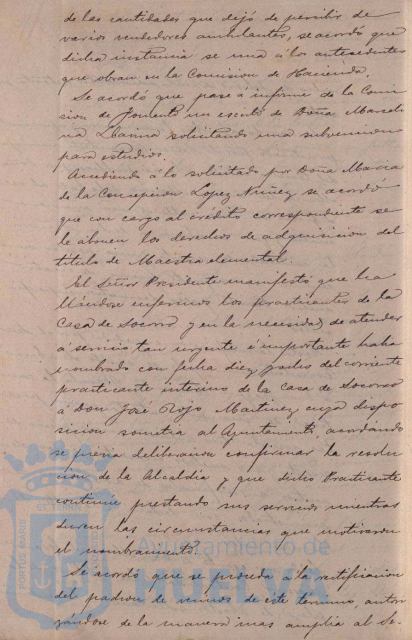 de las cantidades que dejó de percibir de
varios vendedores ambulantes, se acordó que
dicha instancia se una á los antecedentes
que obran en la Comision de Hacienda.
Se acordó que pase á informe de la Comi
sion de Fomento un escrito de Doña Marceli
na solicitando una subvencion
para estudios.
Accediendo á lo solicitado por Doña Maria
de la Concepcion Lopez Nuñez se acordó
que con cargo al crédito correspondiente se
le abonen los derechos de adquisicion del
titulo de Maestra elemental.
El Señor Presidente manifestó que ha
llándose enfermos los practicantes de la
Casa de Socorro y en la necesidad de atender
á servicio tan urgente é importante habia
nombrado con fecha diez y ocho del corriente
practicante interino de la Casa de Socorro
á Don José Rojo Martinez, cuya dispo
sicion sometia al Ayuntamiento, acordando
se previa deliberacion confirmar la resolu
cion de la Alcaldia y que dicho Practicante
continúe prestando sus servicios mientras
duren las circunstancias que motivaron
el nombramiento.
Se acordó que se proceda á la rectificacion
del padron de de este termino, autori
zándose de la manera mas amplia al Se-
Ayuntamiento de
HUELVA
PORTUS MARIS